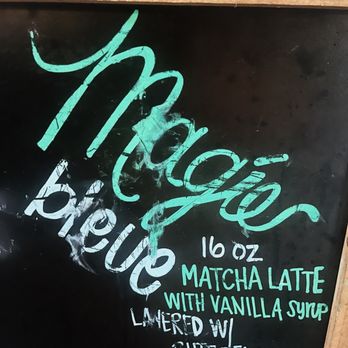 Magie
bleue
16 OZ
MATCHA LATTE
WITH VANILLA SYRUP
LAYERED W/